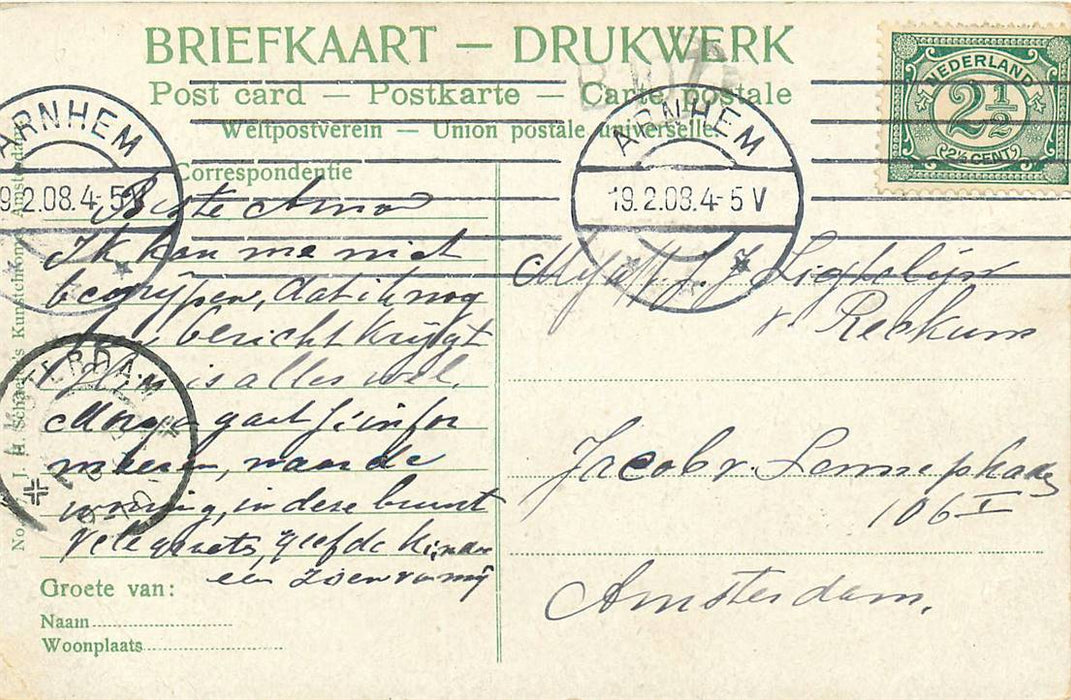 BRIEFKAART — DRUKWERK
Post card — Postkarte — Carte postale
Weltpostverein — Union postale universelle
NEDERLAND
2½
2½ CENT
ARNHEM
19.2.08.4-5V
ARNHEM
19.2.08.4-5 V
Correspondentie
Beste Anna
Ik kan me niet
begrijpen, dat ik nog
bericht krijgt
is alles wel.
Morgen gaat J. infor
meeren, naar de
woning, in deze buurt
Vele groets, geef de kinder
een zoen van mij
Groete van:
Naam
Woonplaats
J. H. Schaefer's Kunstchrom. Amsterdam
No.
AMSTERDAM
J. J. Ligtelijn
v. Reekum
Jacob v. Lennepkade
106 I
Amsterdam.